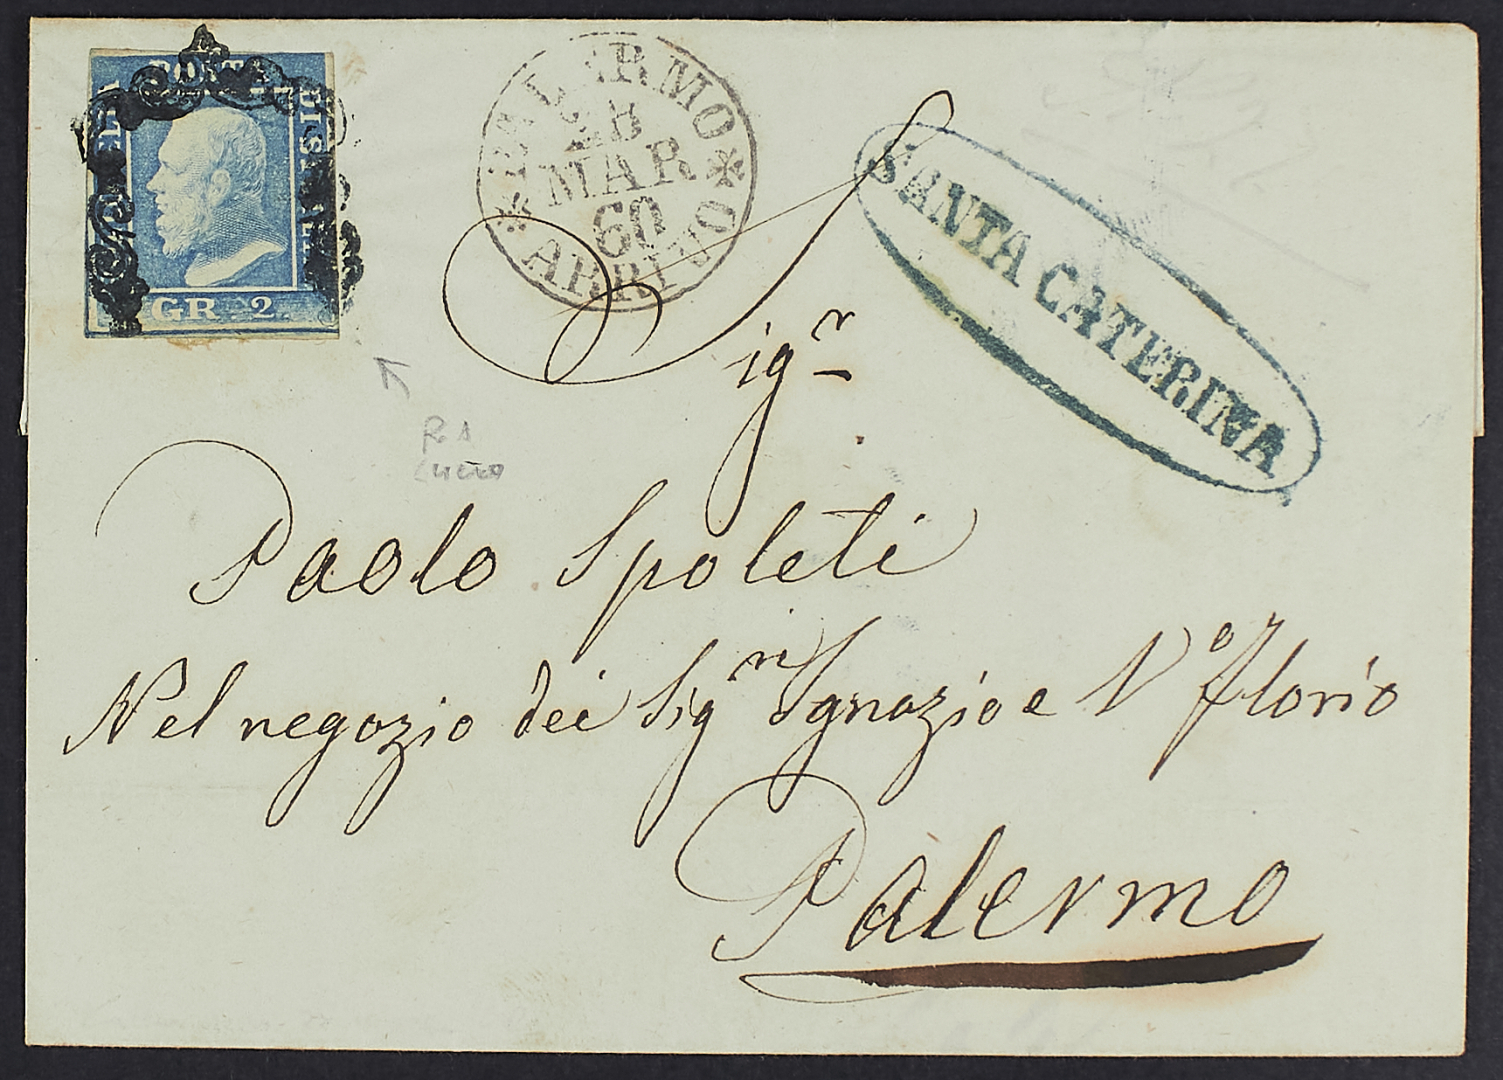 POSTA
DI SICILIA
GR. 2.
PALERMO
MAR
60
ARRIVO
SANTA CATERINA
Sigr
Paolo Spoleti
Nel negozio dei Sigri Ignazio e Vo Florio
Palermo